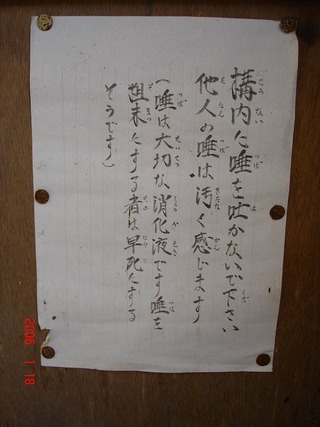 構内に唾を吐かないで下さい
他人の唾は汚く感じます
(唾は大切な消化液です唾を
粗末にする者は早死にする
そうです)
2006 1 18